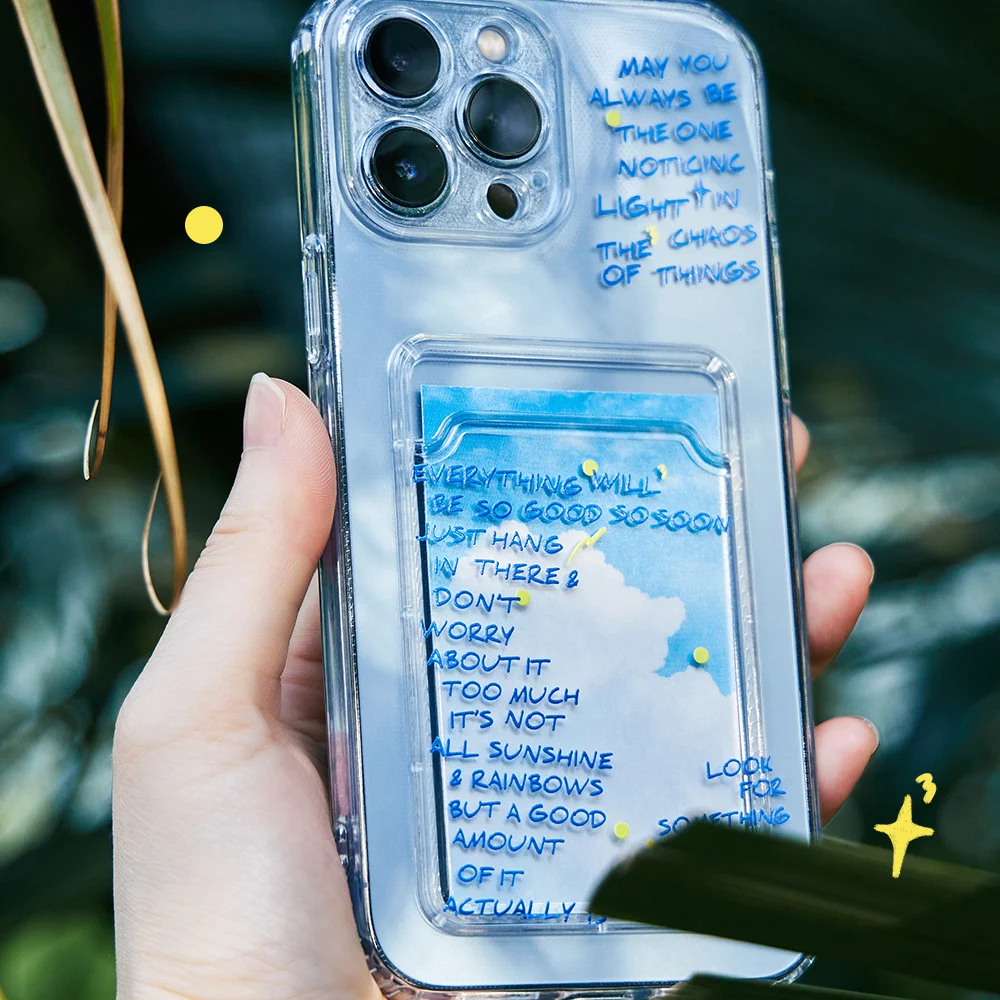 MAY YOU
ALWAYS BE
THE ONE
NOTICING
LIGHT IN
THE CHAOS
OF THINGS
EVERYTHING WILL
BE SO GOOD SO SOON
JUST HANG
IN THERE &
DON'T
WORRY
ABOUT IT
TOO MUCH
IT'S NOT
ALL SUNSHINE
& RAINBOWS
BUT A GOOD
AMOUNT
OF IT
ACTUALLY IS
LOOK
FOR
SOMETHING
3